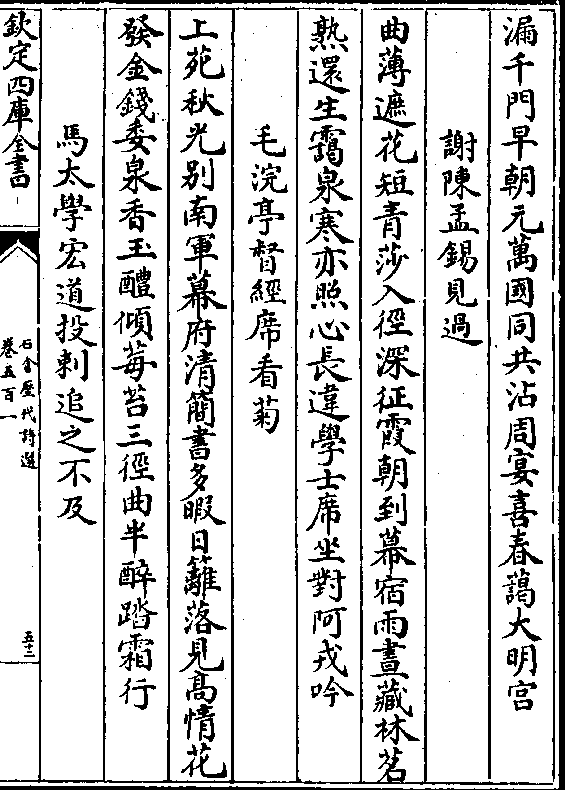 漏千門早朝元萬國同共沾周宴喜春藹大明宫
謝陳孟錫見過
曲薄遮花短青莎入徑深征霞朝到幕宿雨晝藏林茗
熟還生靄泉寒亦照心長違學士席坐對阿戎吟
毛浣亭督經席看菊
上苑秋光别南軍幕府清簡書多暇日籬落見髙情花
發金錢委泉香玉醴傾莓苔三徑曲半醉踏霜行
馬太學宏道投刺追之不及
欽定四庫全書
石倉歷代詩選
卷五百一
五十二